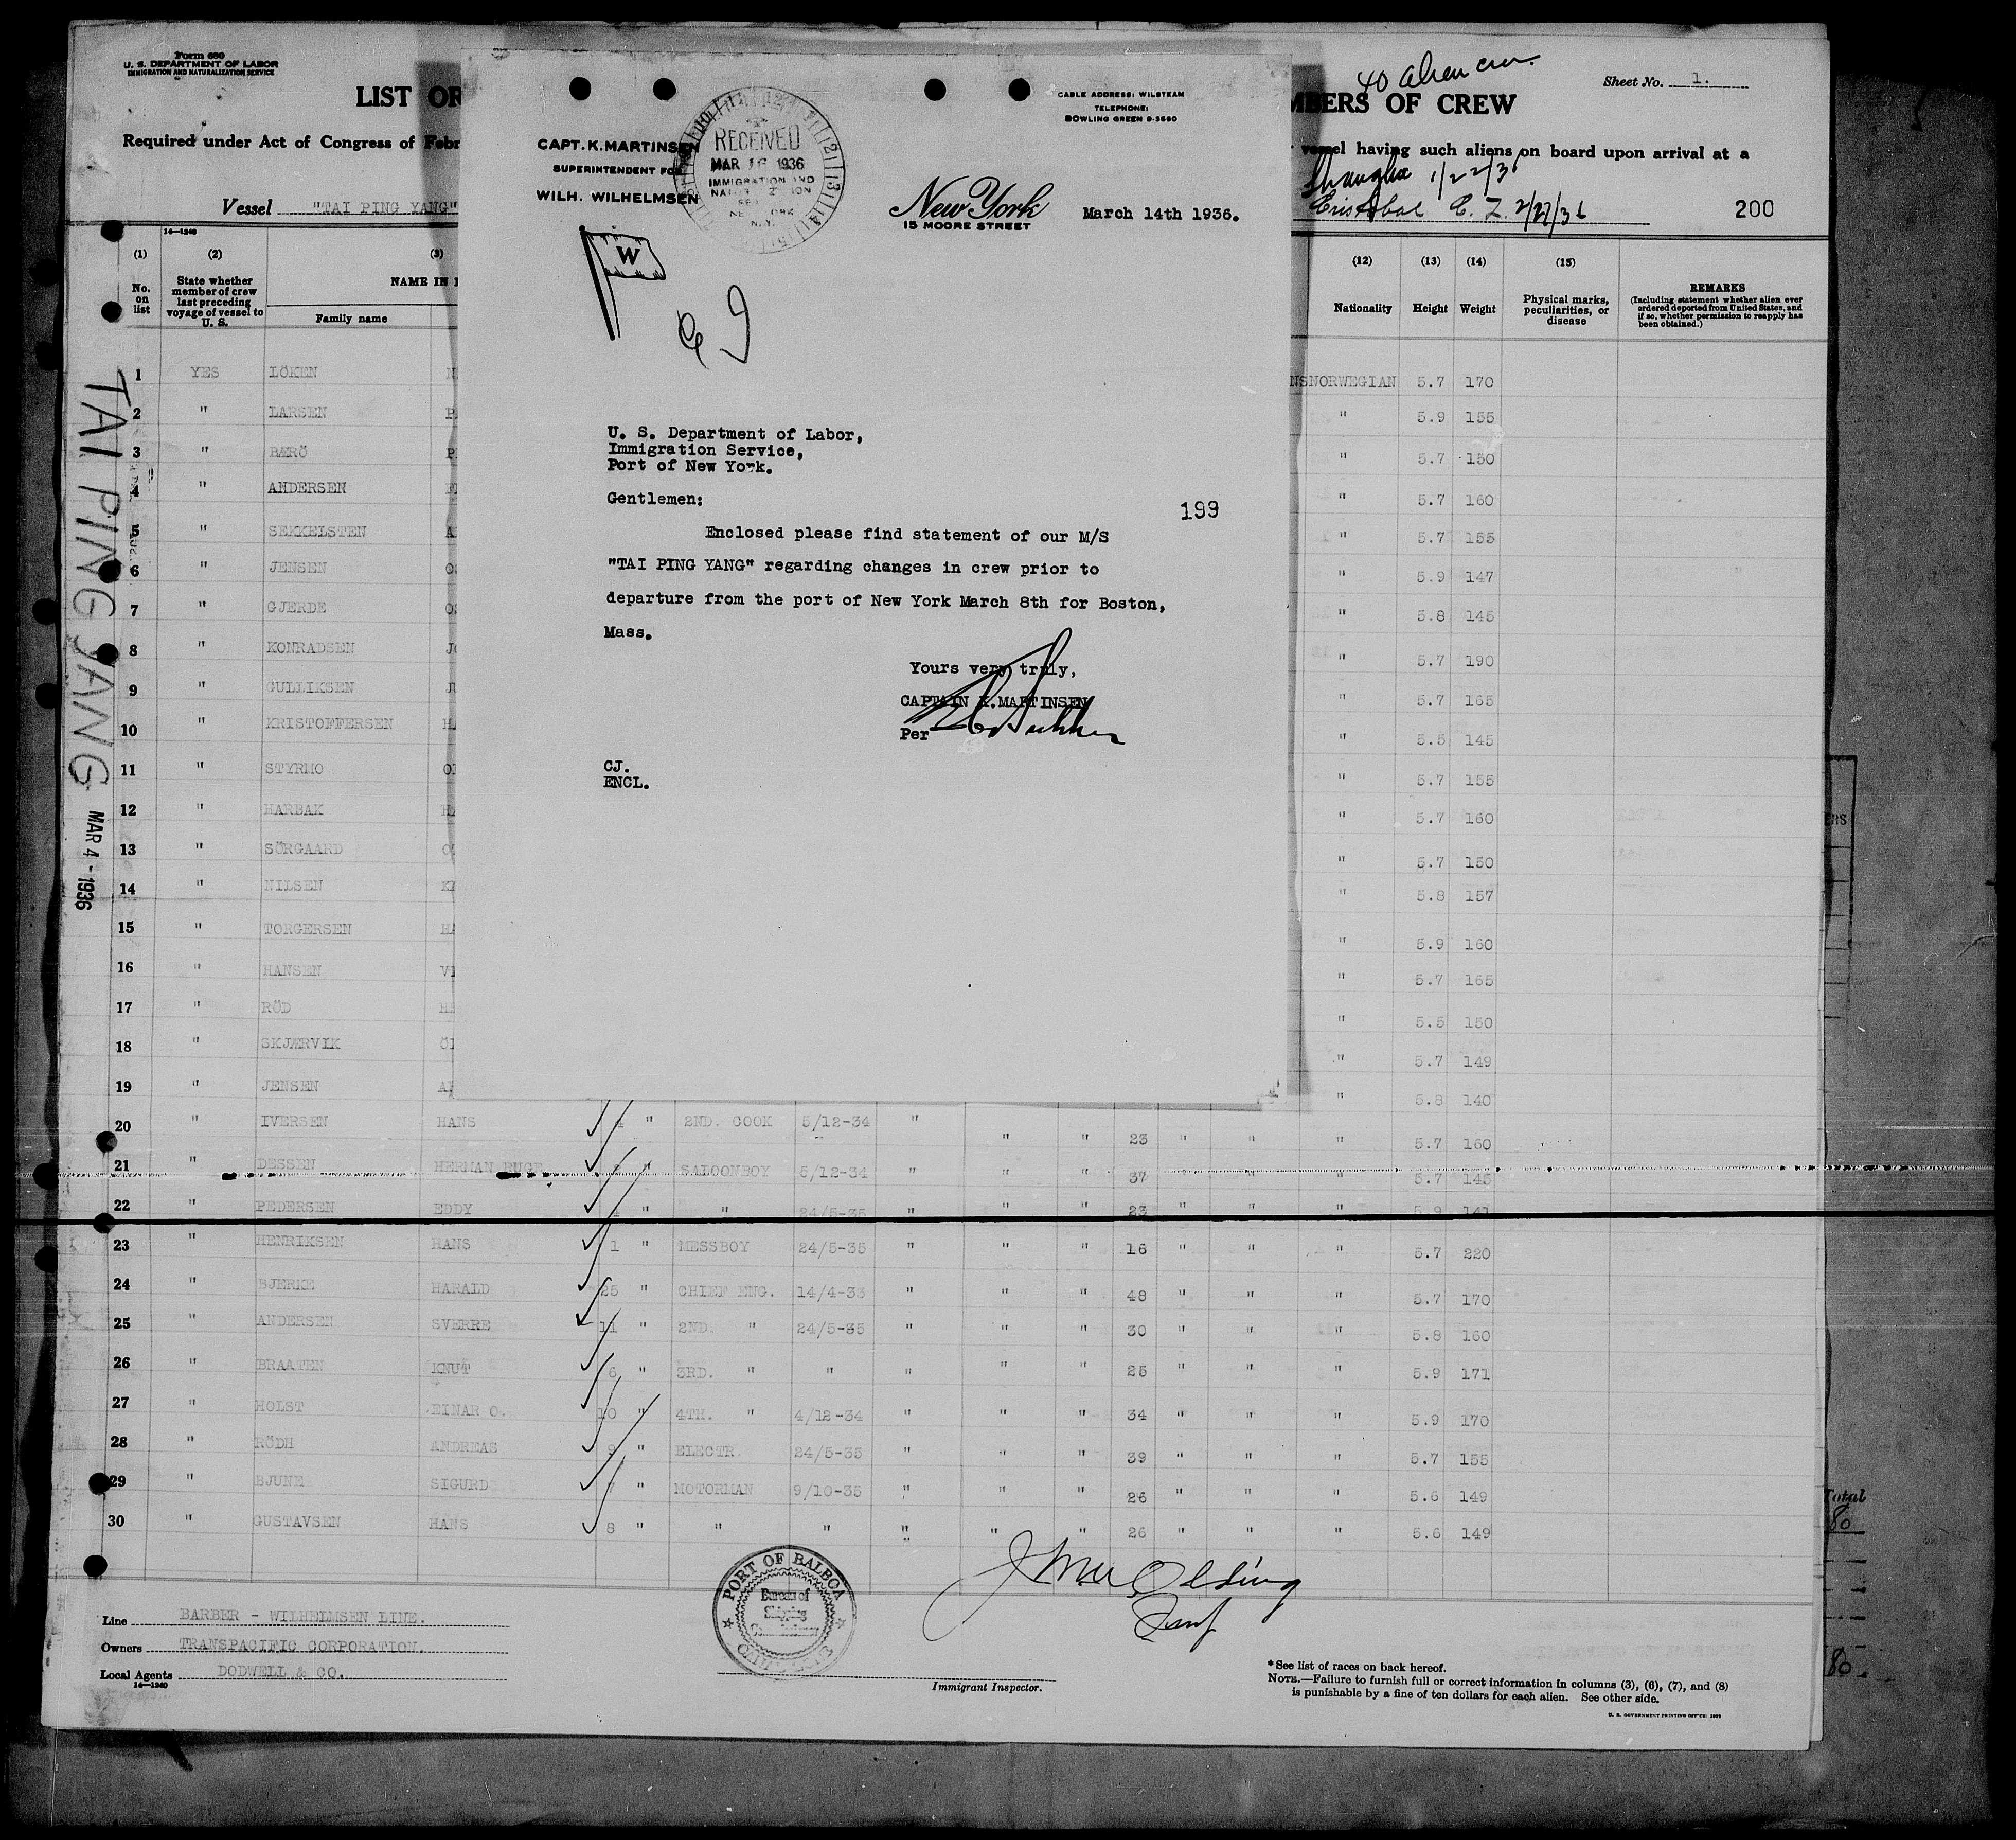 Form 680
U. S. DEPARTMENT OF LABOR
IMMIGRATION AND NATURALIZATION SERVICE
LIST OR
MBERS OF CREW
40 alien crew.
Sheet No. 1.
Required under Act of Congress of Febr
vessel having such aliens on board upon arrival at a
Shanghai 1/22/36
Vessel "TAI PING YANG"
Cristobal C. Z. 2/27/36
200
CAPT. K. MARTINSEN
SUPERINTENDENT FOR
WILH. WILHELMSEN
W
RECEIVED
MAR 16 1936
IMMIGRATION AND
CABLE ADDRESS: WILSTEAM
TELEPHONE:
BOWLING GREEN 9-3660
New York
15 MOORE STREET
March 14th 1936.
U. S. Department of Labor,
Immigration Service,
Port of New York.
Gentlemen:
199
Enclosed please find statement of our M/S
"TAI PING YANG" regarding changes in crew prior to
departure from the port of New York March 8th for Boston,
Mass.
Yours very truly,
CAPTAIN K.MARTINSEN
Per
CJ.
ENCL.
14—1240
(1) (2) (3) (12) (13) (14) (15)
No. on list
State whether member of crew last preceding voyage of vessel to U. S.
NAME IN
Family name
Nationality
Height
Weight
Physical marks, peculiarities, or disease
REMARKS
(Including statement whether alien ever ordered deported from United States, and if so, whether permission to reapply has been obtained.)
TAI PING YANG
MAR 4 - 1936
1 YES LÖKEN NORWEGIAN 5.7 170
2 " LARSEN " 5.9 155
3 " BÆRÖ " 5.7 150
4 " ANDERSEN " 5.7 160
5 " SEKKELSTEN " 5.7 155
6 " JENSEN " 5.9 147
7 " GJERDE " 5.8 145
8 " KONRADSEN " 5.7 190
9 " GULLIKSEN " 5.7 165
10 " KRISTOFFERSEN " 5.5 145
11 " STYRMO " 5.7 155
12 " HARBAK " 5.7 160
13 " SÖRGAARD " 5.7 150
14 " NILSEN " 5.8 157
15 " TORGERSEN " 5.9 160
16 " HANSEN " 5.7 165
17 " RÖD " 5.5 150
18 " SKJÆRVIK " 5.7 149
19 " JENSEN " 5.8 140
20 " IVERSEN HANS " 2ND. COOK 5/12-34 " " " 23 " " " 5.7 160
21 " DESSEN HERMAN " SALOONBOY 5/12-34 " " " 37 " " " 5.7 145
22 " PEDERSEN EDDY " " 24/5-35 " " " 23 " " " 5.9 141
23 " HENRIKSEN HANS 1 " MESSBOY 24/5-35 " " " 16 " " " 5.7 220
24 " BJERKE HARALD 25 " CHIEF ENG. 14/4-33 " " " 48 " " " 5.7 170
25 " ANDERSEN SVERRE 11 " 2ND. " 24/5-35 " " " 30 " " " 5.8 160
26 " BRAATEN KNUT 6 " 3RD. " " " " " 25 " " " 5.9 171
27 " HOLST EINAR O. 10 " 4TH. " 4/12-34 " " " 34 " " " 5.9 170
28 " RÖDH ANDREAS 9 " ELECTR. 24/5-35 " " " 39 " " " 5.7 155
29 " BJUNE SIGURD 7 " MOTORMAN 9/10-35 " " " 26 " " " 5.6 149
30 " GUSTAVSEN HANS 8 " " " " " " 26 " " " 5.6 149
Total
80
80
Line BARBER - WILHELMSEN LINE.
Owners TRANSPACIFIC CORPORATION.
Local Agents DODWELL & CO.
14—1240
PORT OF BALBOA
Bureau of
Shipping
Immigrant Inspector.
* See list of races on back hereof.
NOTE.—Failure to furnish full or correct information in columns (3), (6), (7), and (8)
is punishable by a fine of ten dollars for each alien. See other side.
U. S. GOVERNMENT PRINTING OFFICE: